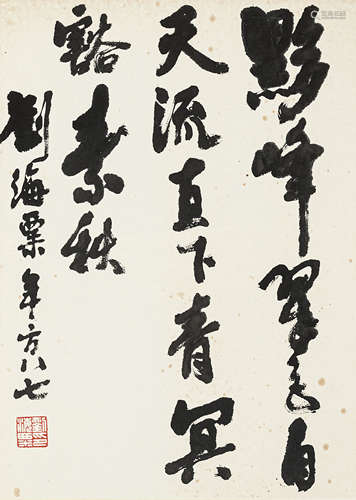 黟峰翠色自
天流直下青冥
豁素秋
劉海粟年方八七